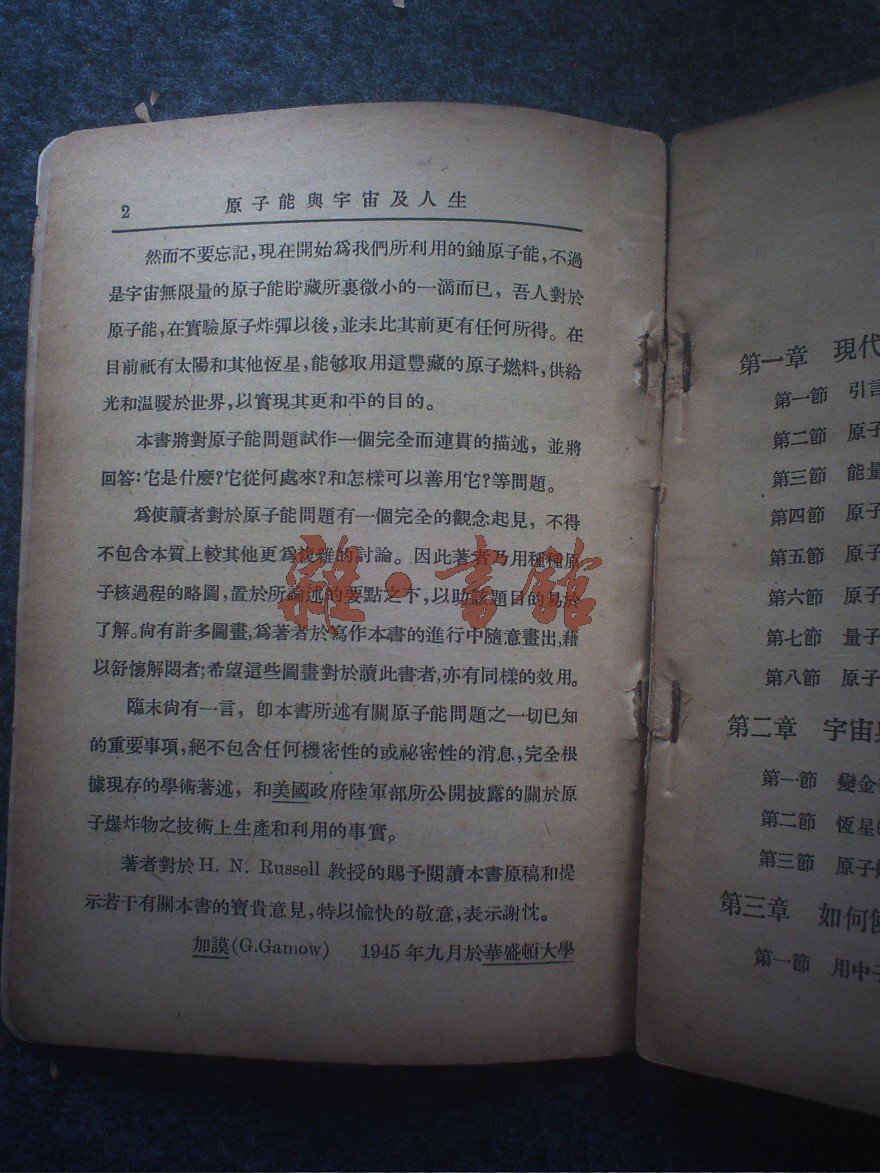 2 原子能與宇宙及人生
然而不要忘記,現在開始爲我們所利用的鈾原子能,不過
是宇宙無限量的原子能貯藏所裏微小的一滴而已,吾人對於
原子能,在實驗原子炸彈以後,並未比其前更有任何所得。在
目前祇有太陽和其他恆星,能够取用這豐藏的原子燃料,供給
光和温暖於世界,以實現其更和平的目的。
本書將對原子能問題試作一個完全而連貫的描述,並將
回答:它是什麽?它從何處來?和怎樣可以善用它?等問題。
爲使讀者對於原子能問題有一個完全的觀念起見,不得
不包含本質上較其他更爲複雜的討論。因此著者乃用種種原
子核過程的略圖,置於所論述的要點之下,以助該題目的易於
了解。尙有許多圖畫,爲著者於寫作本書的進行中隨意畫出,藉
以舒懷解悶者;希望這些圖畫對於讀此書者,亦有同樣的效用。
臨末尙有一言,卽本書所述有關原子能問題之一切已知
的重要事項,絕不包含任何機密性的或祕密性的消息,完全根
據現存的學術著述,和美國政府陸軍部所公開披露的關於原
子爆炸物之技術上生產和利用的事實。
著者對於H. N. Russell 教授的賜予閱讀本書原稿和提
示若干有關本書的寶貴意見,特以愉快的敬意,表示謝忱。
加謨(G.Gamow) 1945年九月於華盛頓大學
雜·書館
第一章 現代
第一節 引言
第二節 原子
第三節 能量
第四節 原子
第五節 原子
第六節 原子
第七節 量子
第八節 原子
第二章 宇宙與
第一節 變金
第二節 恆星的
第三節 原子
第三章 如何使
第一節 用中子